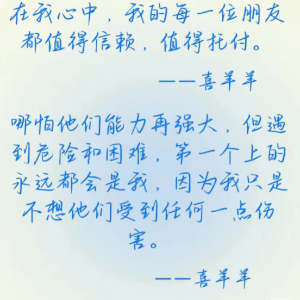 在我心中，我的每一位朋友
都值得信赖，值得托付。
——喜羊羊
哪怕他们能力再强大，但遇
到危险和困难，第一个上的
永远都会是我，因为我只是
不想他们受到任何一点伤
害。
——喜羊羊